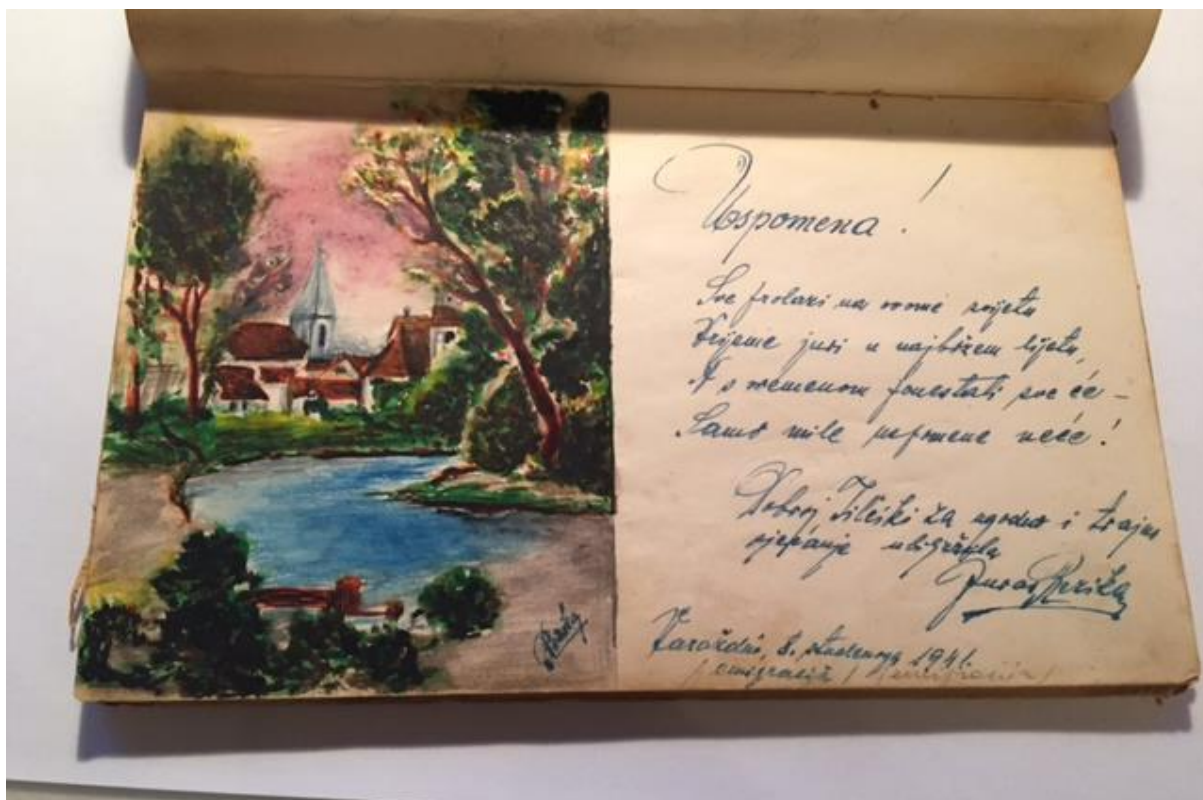 Uspomena !
Sve prolazi na ovome svijetu
Vrijeme juri u najbržem lijetu,
s vremenom ponestati sve će –
Samo mile uspomene neće !
Dobroj za ugodno i trajno
sjećanje ubilježila
Varaždin, 8. studenoga 1941.
/ emigracija / emigracija /